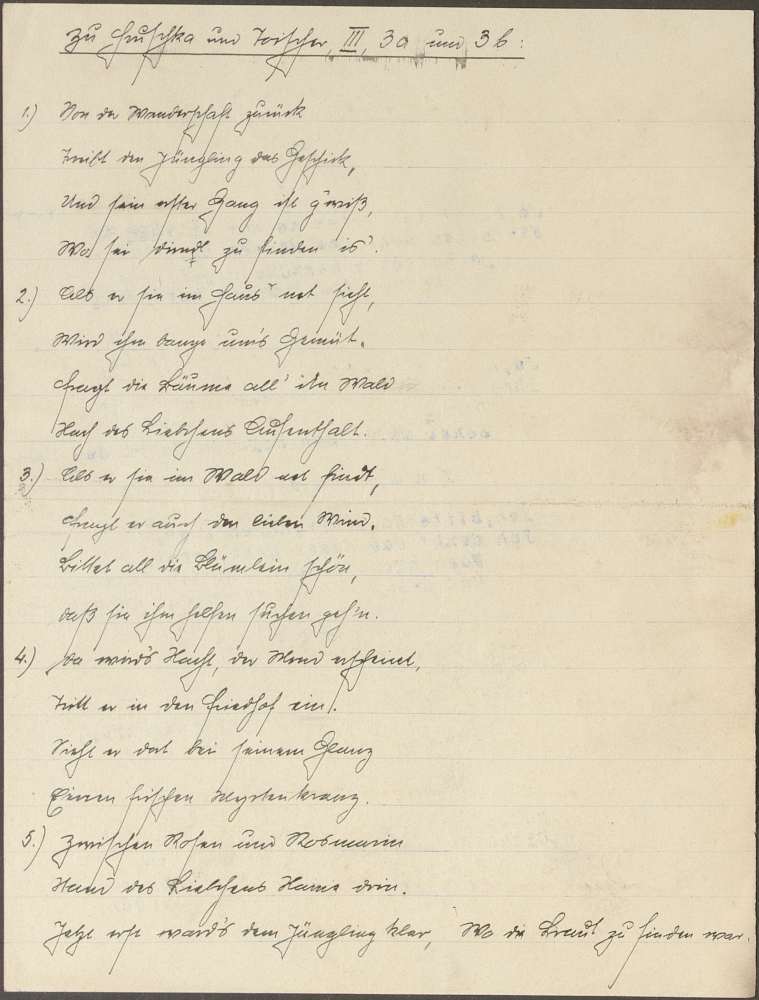 Zu Hruschka und Toischer, III, 3a und 3b:
1.) Von der Wanderschaft zurück
Treibt den Jüngling das Geschick,
Und sein erster Gang ist g'wiß,
Wo sei diendl zu finden is'.
2.) Als er sie im Haus' net sieht,
Wird ihm bange um's Gemüt.
Fragt die Bäume all' im Wald
Nach des Liebchens Aufenthalt.
3.) Als er sie im Wald net findt,
Fragt er auch den lieben Wind.
Bittet all die Blümlein schön,
daß sie ihm helfen suchen geh'n.
4.) Da wird's Nacht, der Mond erscheint,
Tritt er in den Friedhof ein.
Sieht er dort bei seinem Glanz
Einen frischen Myrtenkranz.
5.) Zwischen Rosen und Rosmarin
Stand des Liebchens Name drin.
Jetzt erst ward's dem Jüngling klar, Wo die Braut zu finden war.